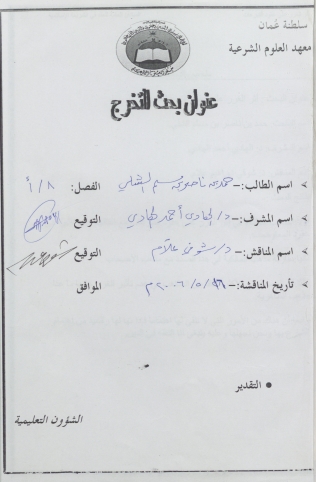 سلطنة عُمان
معهد العلوم الشرعية
عنوان بحث التخرج
اسم الطالب:- حمد بن ناصر بن الفصل: ٨/أ
اسم المشرف:- د/الهادي أحمد الهادي التوقيع
اسم المناقش:- د/شوقي علام التوقيع
تأريخ المناقشة:- /٥/٢٠٠٦م الموافق
التقدير
الشؤون التعليمية